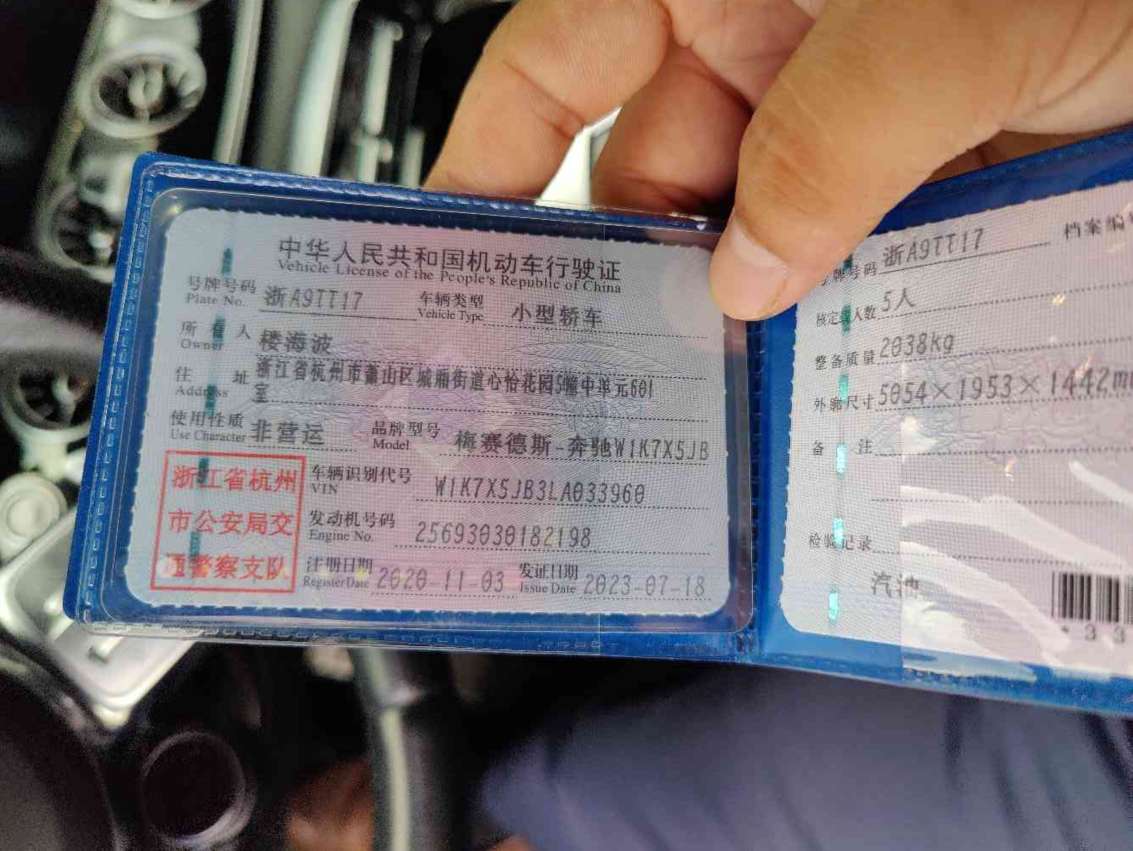 中华人民共和国机动车行驶证
Vehicle License of the People's Republic of China
号牌号码 浙A9TT17 车辆类型 小型轿车
Plate No. Vehicle Type
所有人 楼海波
Owner
住址 浙江省杭州市萧山区城厢街道心怡花园5幢中单元601
Address 室
使用性质 非营运 品牌型号 梅赛德斯-奔驰W1K7X5JB
Use Character Model
浙江省杭州
市公安局交
通警察支队
车辆识别代号 W1K7X5JB3LA033960
VIN
发动机号码 25693030182198
Engine No.
注册日期 2020-11-03 发证日期 2023-07-18
Register Date Issue Date
号牌号码 浙A9TT17 档案编
核定载人数 5人
整备质量 2038kg
外廓尺寸 5054×1953×1442m
备注
检验记录
汽油
*33